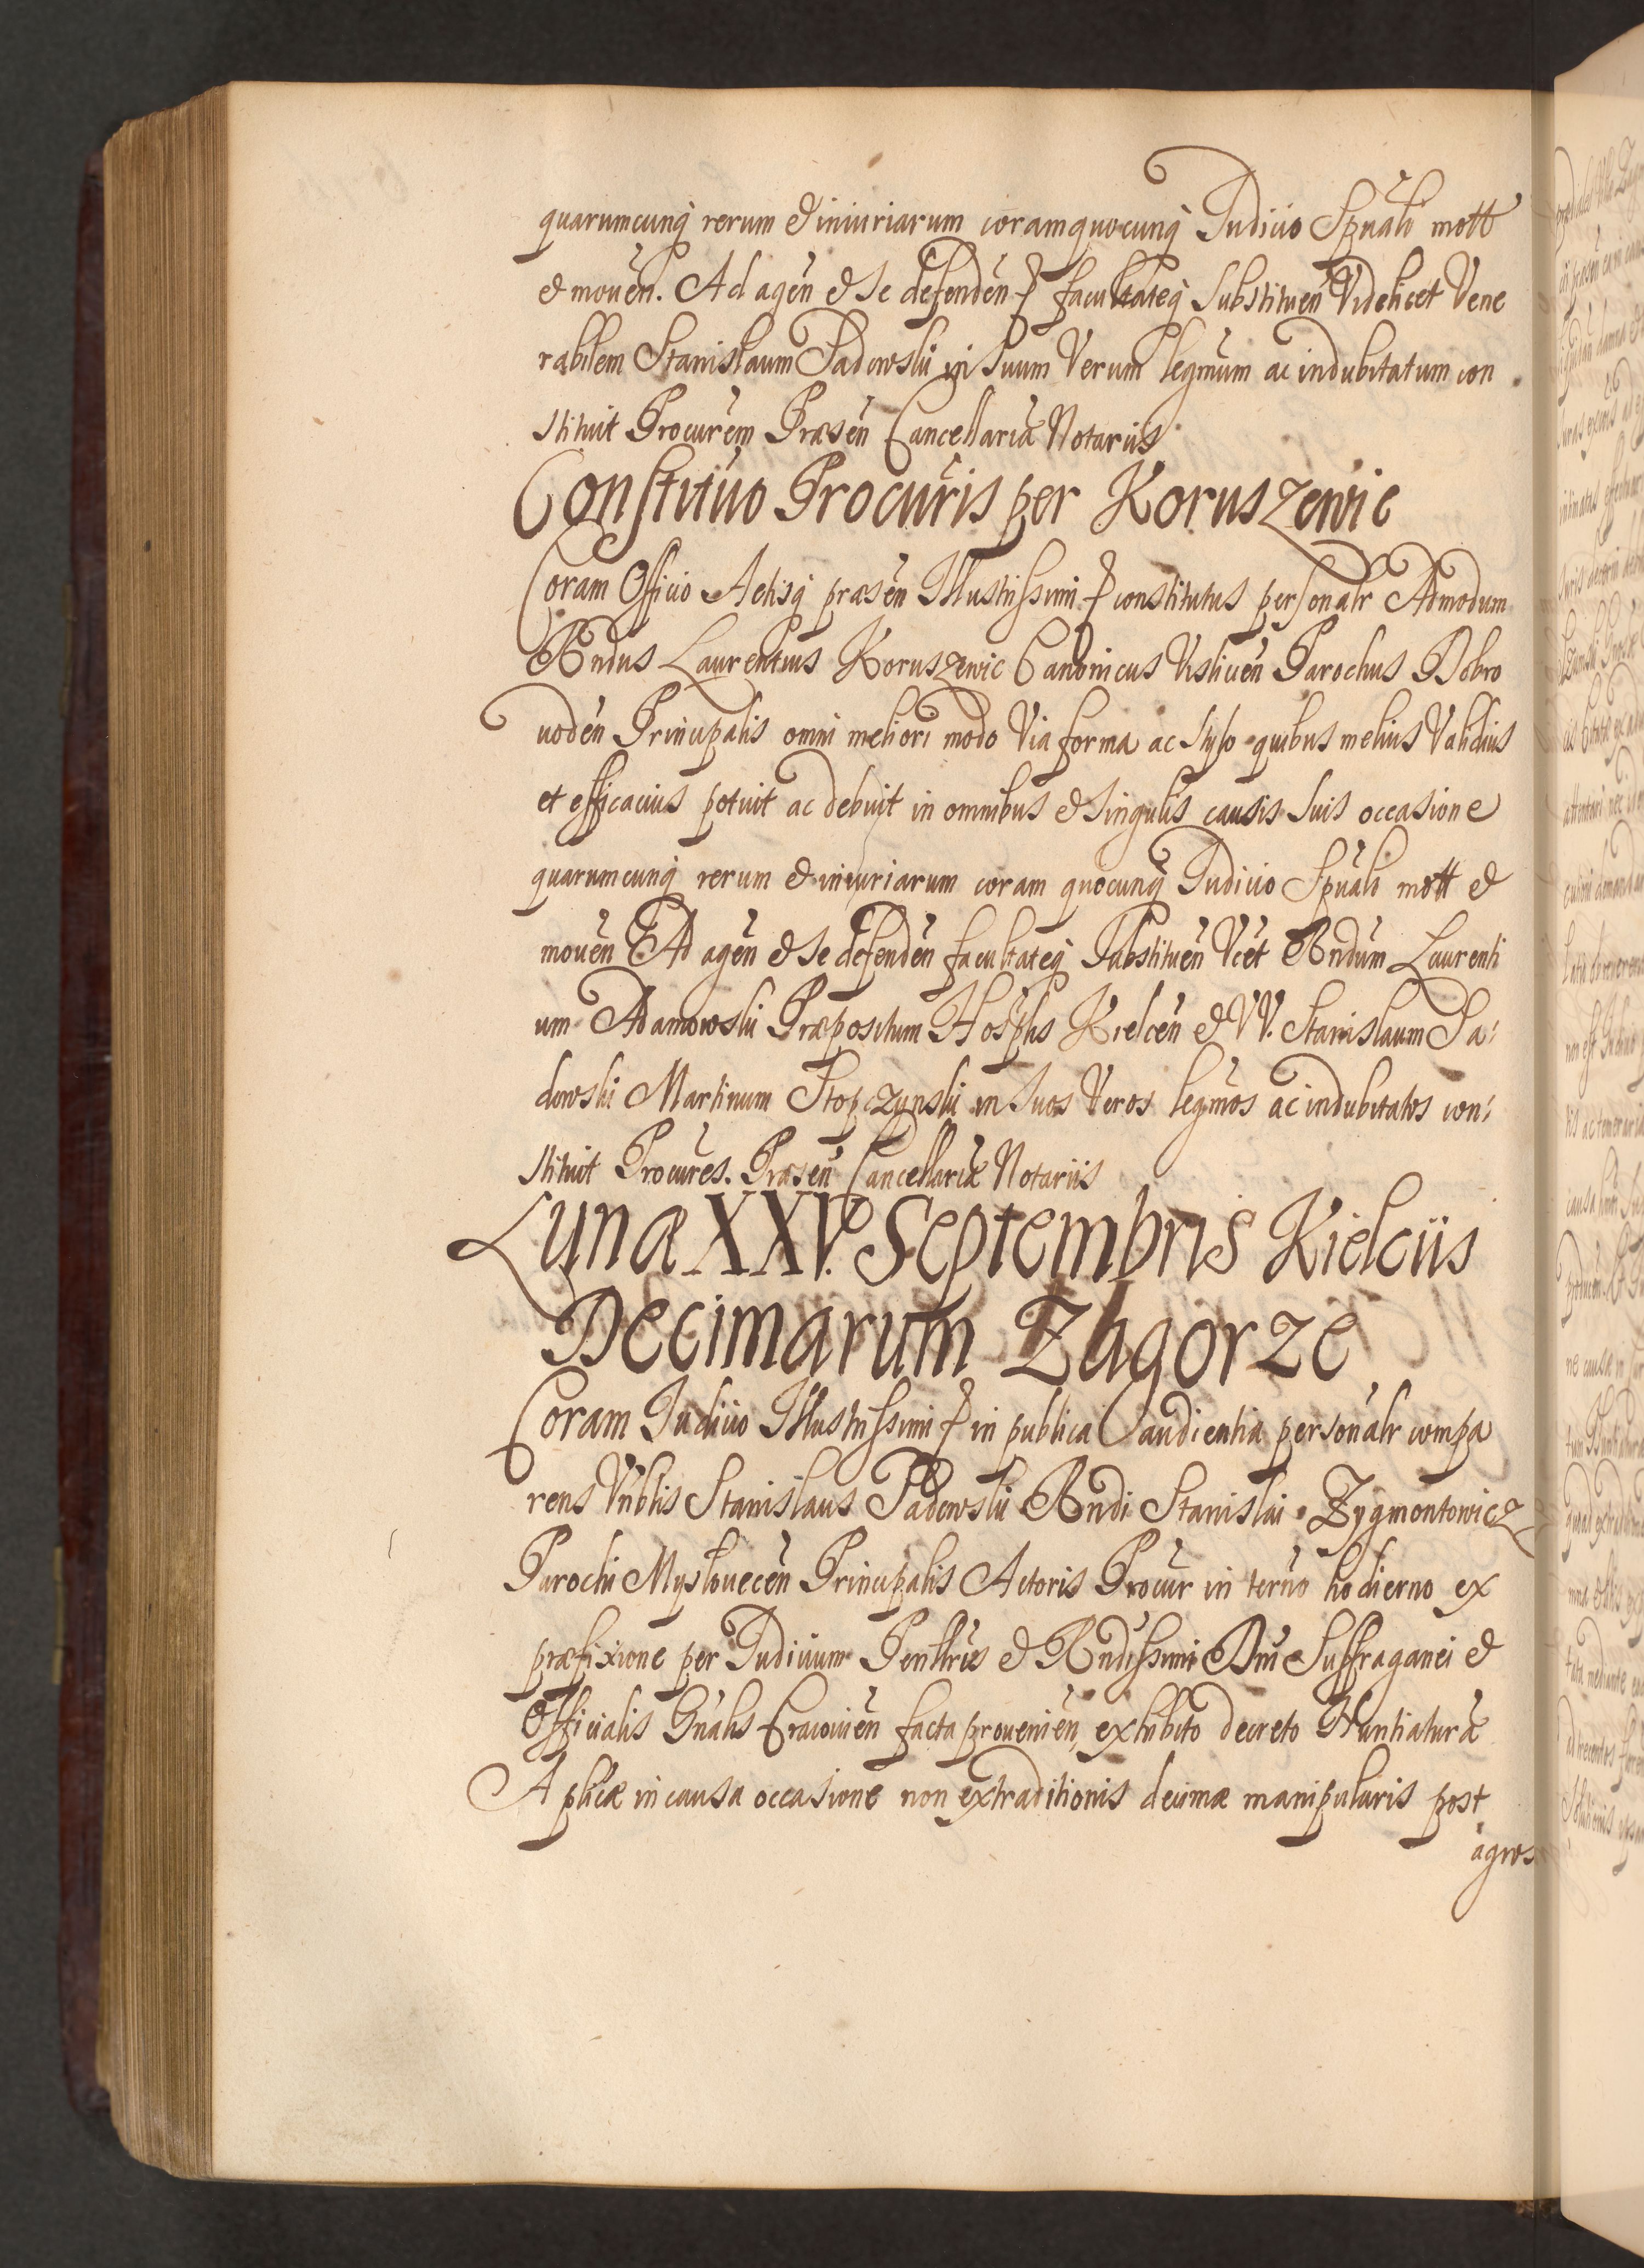 quarumcunq rerum & iniuriarum coram quocunq Judicio Spuali mott
& mouen. Ad agen & se defenden facultateq Substituen Videlicet Vene
rabilem Stanislaum Padowski in suum Verum legmum ac indubitatum con
stituit Procurem Præsen Cancellariæ Notariis
Constitutio Procuris per Koruszewic
Coram Officio Actisq præsen Illustrissimi constitutus personalr Admodum
Rndus Laurentius Koruszewic Canonicus Vislicen Parochus Dobro
uoden Principalis omni meliori modo Via forma ac stylo quibus melius Validius
et efficacius potuit ac debuit in omnibus & singulis causis suis occasione
quarumcunq rerum & iniuriarum coram quocunq Judicio Spuali mott &
mouen Ad agen & se defenden facultateq Substituen Vcet Rndum Laurenti
um Adamowski Præpositum Hosplis Kielcen & VV. Stanislaum Pa:
dowski Martinum Stopczynski in suos Veros legmos ac indubitatos con:
stituit Procures. Præsen Cancellariæ Notariis
Luna XXV. Septembris Kielciis
Decimarum Zagorze
Coram Judicio Illustrissimi in publica audientia personalr compa
rens Vnblis Stanislaus Padowski Rndi Stanislai Zygmontowicz
Parochi Myslouecen Principalis Actoris Procur in terno hodierno ex
præfixione per Judicium Penllris & Rndissimi Dni Suffraganei &
Officialis Gnalis Cracouien facta prouenien, exhibito decreto Nuntiaturæ
Aplicæ in causa occasione non extraditionis decimæ manipularis post
agros